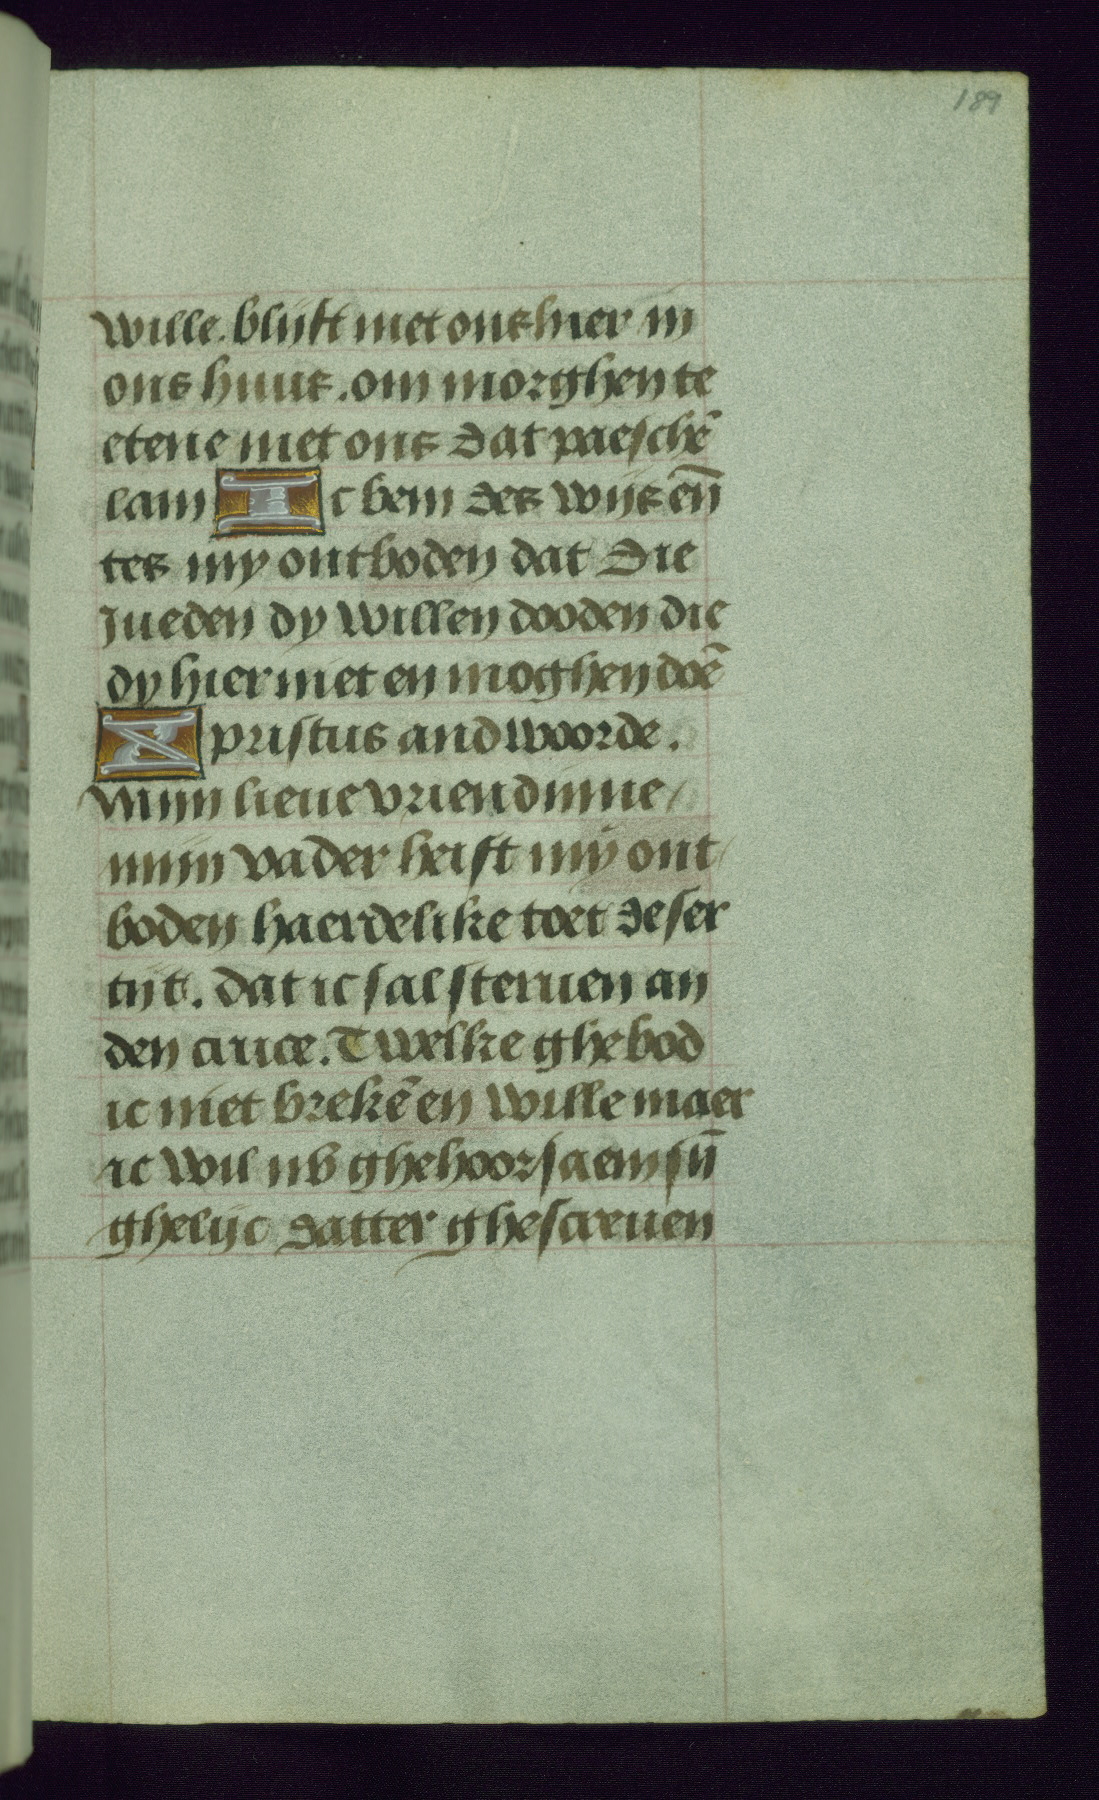 189
wille. blijft met ons hier in
ons huus. om morghen te
etene met ons dat paeschē
lam Ic bem des wijs eñ
tes my ontboden dat die
Jueden dy willen dooden die
dy hier niet en moghen doē
Xpristus andwoorde.
Mijn lieue vriendinne/
mijn vader heift mij ont/
boden haerdelike toet deser
tijt. dat ic sal steruen an
den cruce. Twelke ghebod
ic niet brekē en wille maer
ic wil hē ghehoorsaem sij̄
ghelijc datter ghescreuen